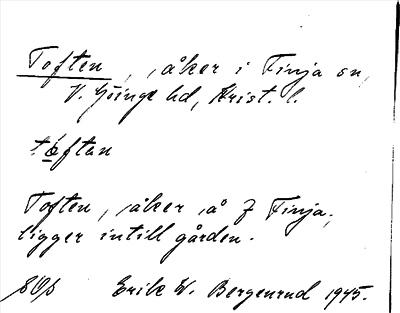 Toften, åker i Finja sn,
V. Göinge hd, Krist. l.
tåftan
Toften, åker å 7 Finja,
ligger intill gården.
Erik W. Bergenrud 1945.